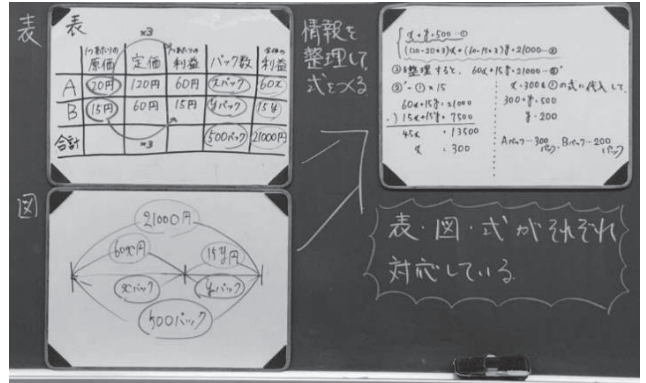 表
表
×3
1つあたりの原価 定価 利益 パック数 全体の利益
A 20円 120円 60円 xパック 60x
B 15円 60円 15円 yパック 15y
合計 ×3 500パック 21000円
図
21000円
60x円 15y円
xパック yパック
500パック
情報を
整理して
式をつくる
x+y=500…①
(120-20×3)x+(60-15×3)y=21000…②
②を整理すると、60x+15y=21000…②'
②'-①×15
60x+15y=21000
-) 15x+15y=7500
45x =13500
x =300
x=300を①の式に代入して、
300+y=500
y=200
Aパック…300パック、Bパック…200パック
表・図・式がそれぞれ
対応している